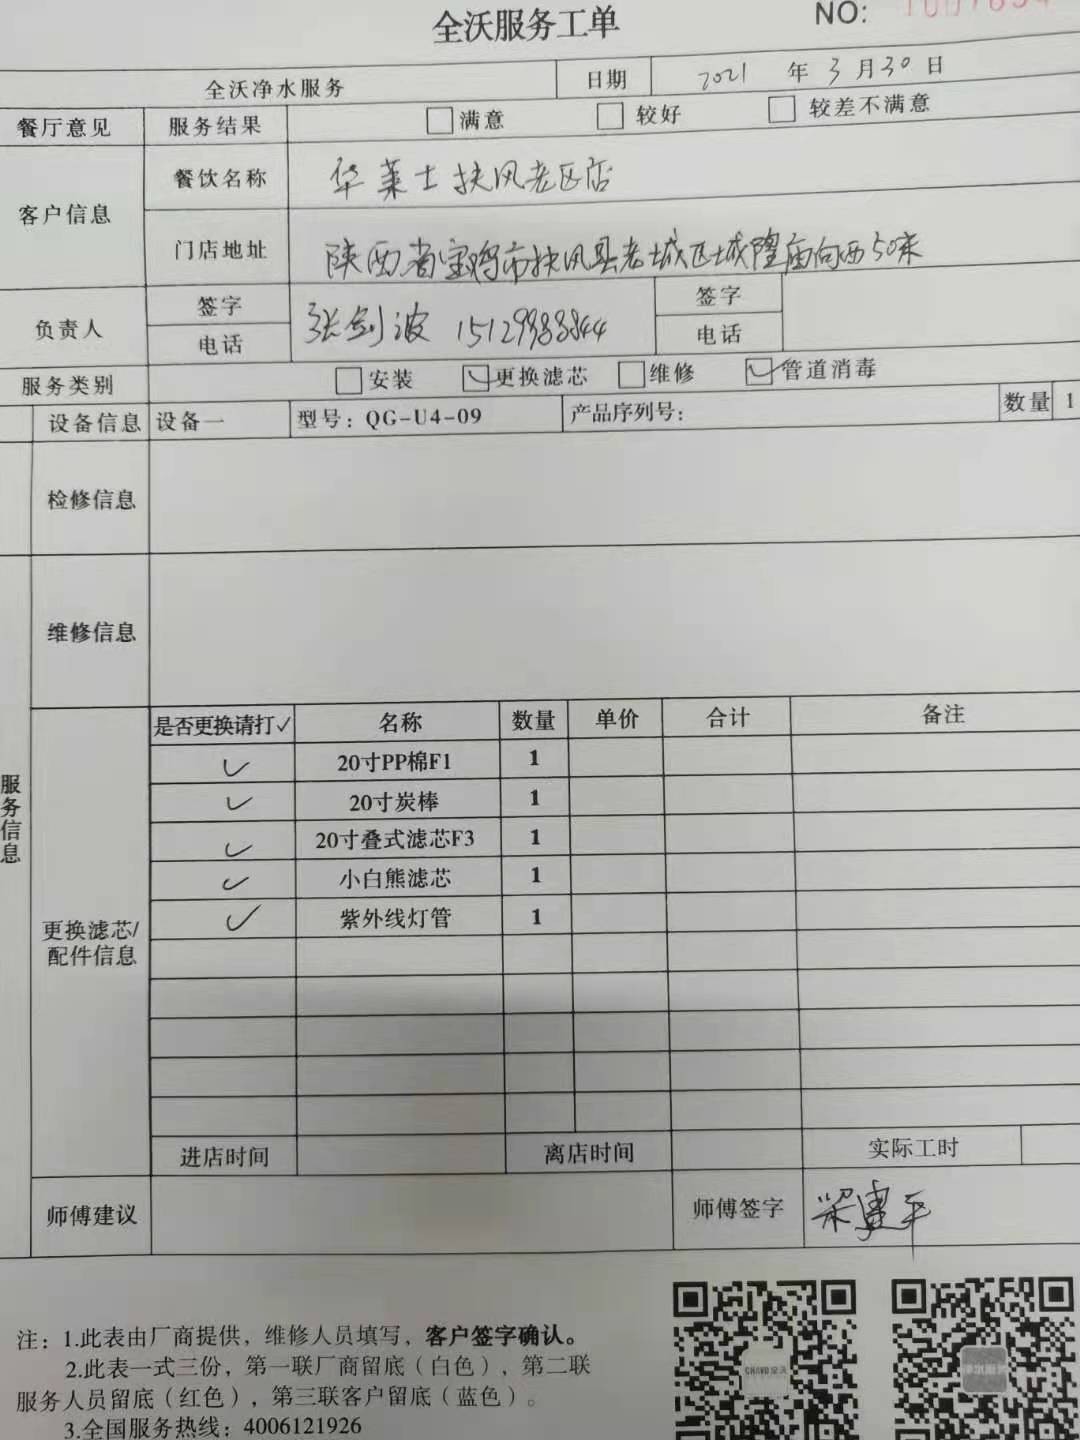 全沃服务工单
NO:
全沃净水服务 日期 2021 年 3 月 30 日
餐厅意见 服务结果 满意 较好 较差不满意
客户信息 餐饮名称 华莱士扶风老区店
门店地址 陕西省宝鸡市扶风县老城区城隍庙向西50米
负责人 签字 电话 张剑波 15129988844 签字 电话
服务类别 安装 更换滤芯 维修 管道消毒
设备信息 设备一 型号：QG-U4-09 产品序列号： 数量 1
检修信息
维修信息
服务信息
更换滤芯/
配件信息
是否更换请打✓ 名称 数量 单价 合计 备注
✓ 20寸PP棉F1 1
✓ 20寸炭棒 1
✓ 20寸叠式滤芯F3 1
✓ 小白熊滤芯 1
✓ 紫外线灯管 1
进店时间 离店时间 实际工时
师傅建议 师傅签字 梁建平
注：1.此表由厂商提供，维修人员填写，客户签字确认。
2.此表一式三份，第一联厂商留底（白色），第二联
服务人员留底（红色），第三联客户留底（蓝色）。
3.全国服务热线：4006121926